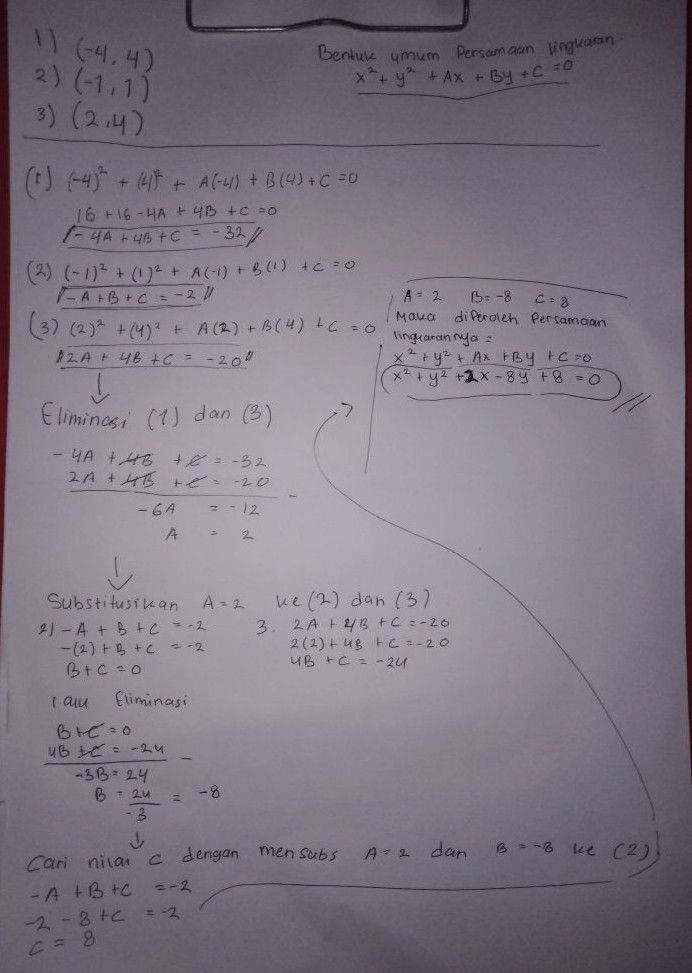 1) (-4, 4)
2) (-1, 1)
3) (2,4)
Bentuk umum Persamaan lingkaran:
x² + y² + Ax + By + C = 0
(1) (-4)² + (4)² + A(-4) + B(4) + C = 0
16 + 16 - 4A + 4B + C = 0
- 4A + 4B + C = -32
(2) (-1)² + (1)² + A(-1) + B(1) + C = 0
- A + B + C = -2
(3) (2)² + (4)² + A(2) + B(4) + C = 0
2A + 4B + C = -20
Eliminasi (1) dan (3)
- 4A + 4B + C = -32
2A + 4B + C = -20 -
-6A = -12
A = 2
Substitusikan A = 2 ke (2) dan (3)
2) - A + B + C = -2
-(2) + B + C = -2
B + C = 0
3. 2A + 4B + C = -20
2(2) + 4B + C = -20
4B + C = -24
lalu Eliminasi
B + C = 0
4B + C = -24 -
-3B = 24
B = 24/-3 = -8
Cari nilai C dengan mensubs A = 2 dan B = -8 ke (2)
- A + B + C = -2
-2 - 8 + C = -2
C = 8
A = 2 B = -8 C = 8
Maka diperoleh Persamaan
lingkarannya =
x² + y² + Ax + By + C = 0
x² + y² + 2x - 8y + 8 = 0